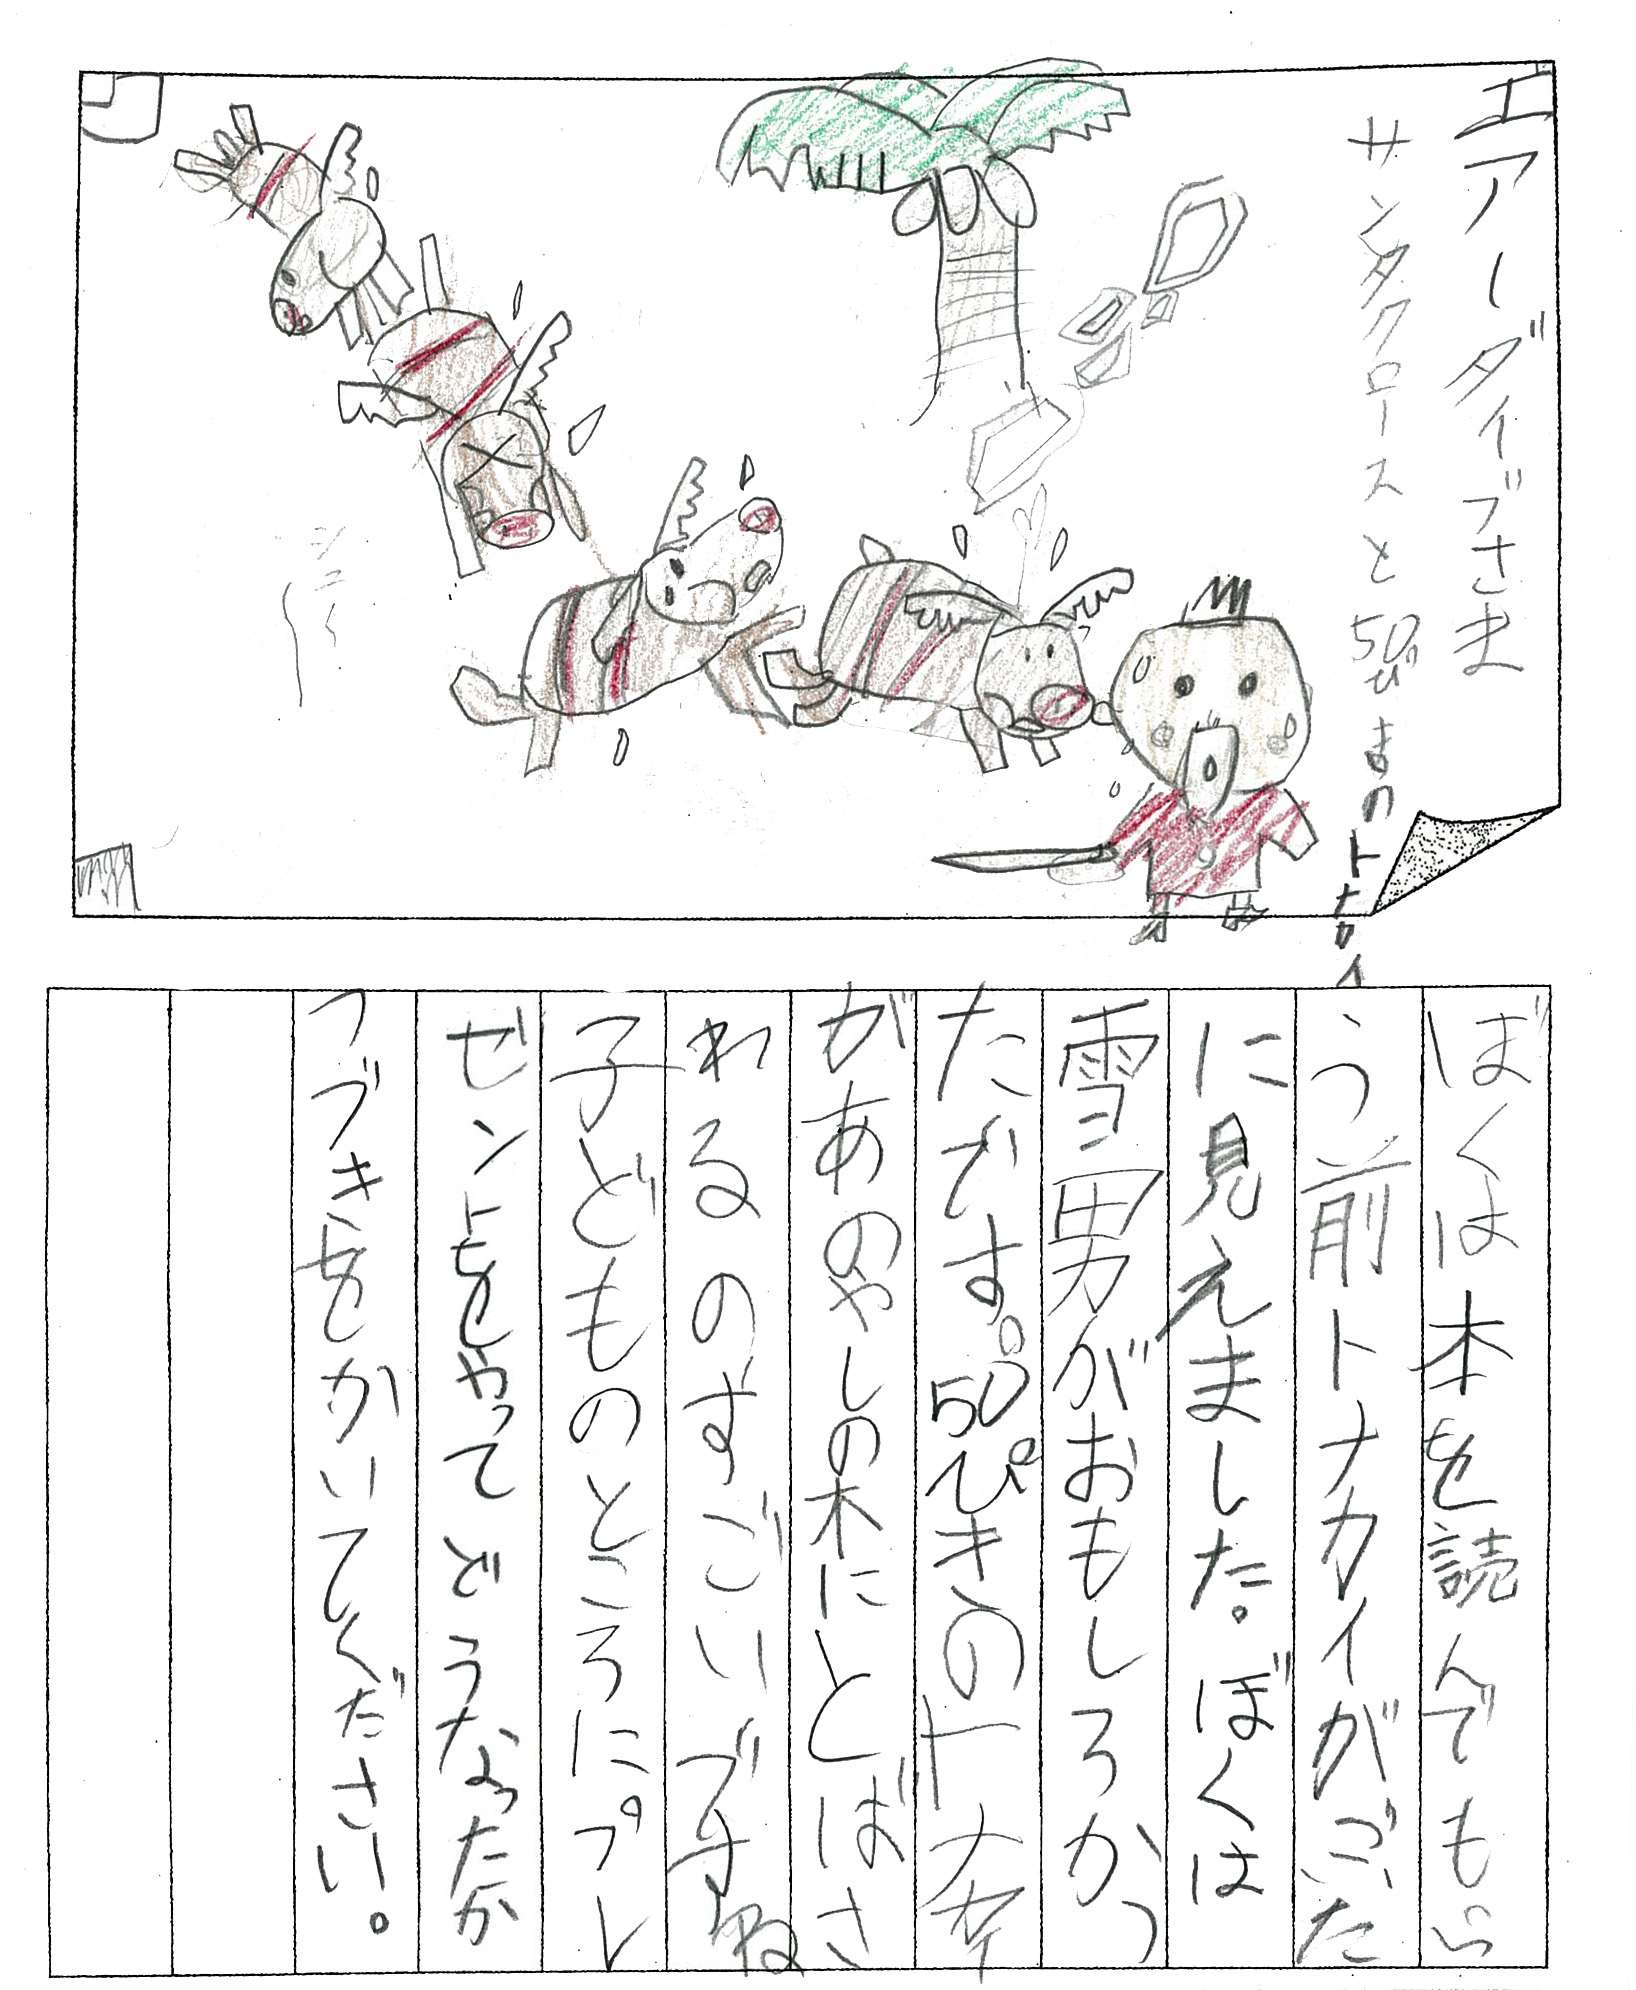 エアーダイブさま
サンタクロースと50びきのトナカイ
ぼくは本を読んでもら
う前トナカイがごった
に見えました。ぼくは
雪男がおもしろかっ
たです。50ぴきのトナカイ
があのやしの木にとばさ
れるのすごいですね
子どものところにプレ
ゼントをやってどうなったか
つづきをかいてください。